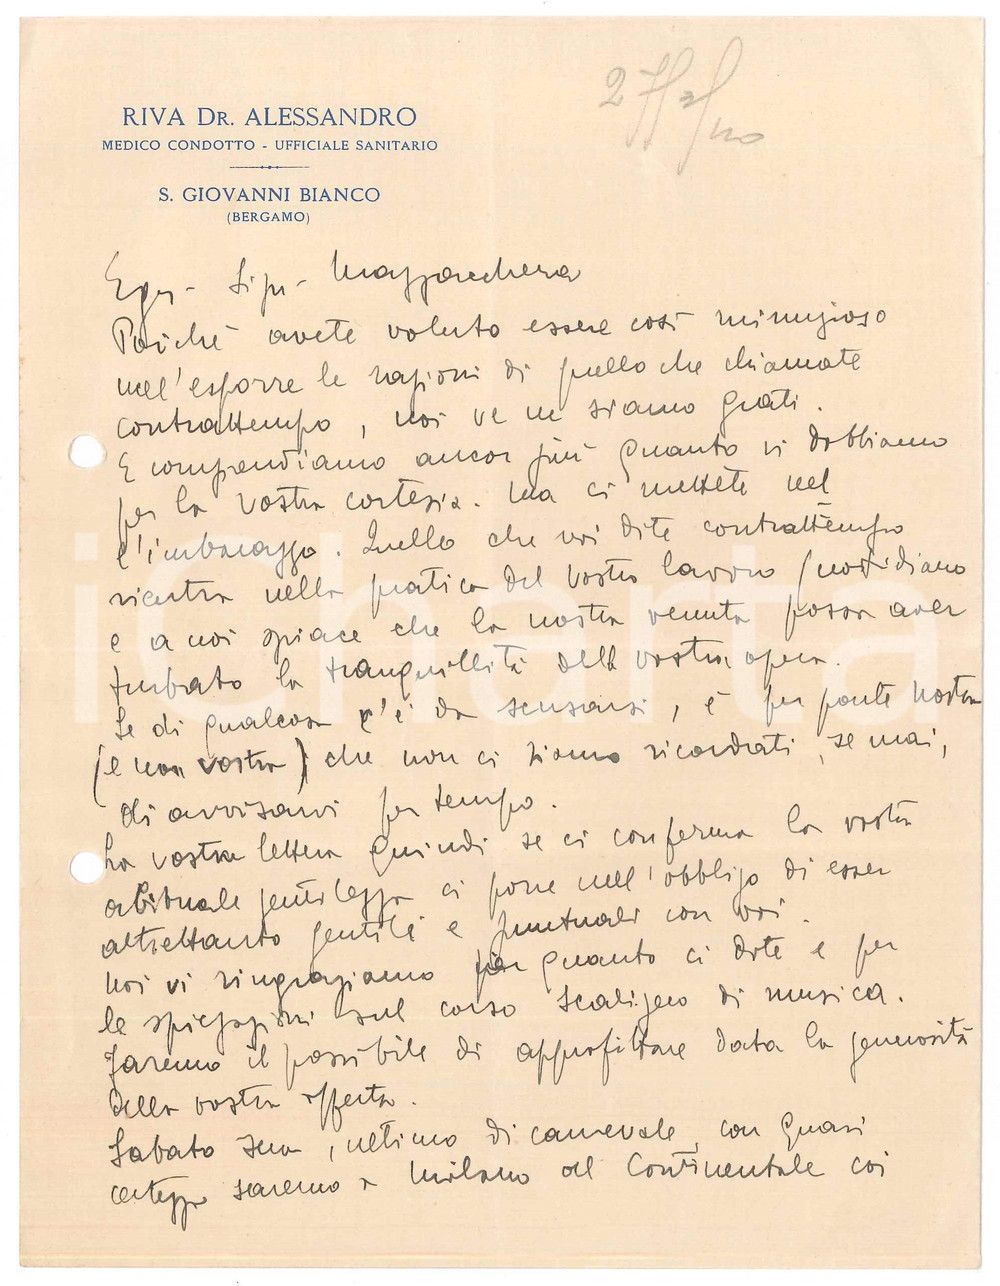 RIVA DR. ALESSANDRO
MEDICO CONDOTTO - UFFICIALE SANITARIO
S. GIOVANNI BIANCO
(BERGAMO)
Egr - Sigr - Mazzucchera
Poiché avete voluto essere così minuzioso
nell'esporre le ragioni di quello che chiamate
contrattempo, noi ve ne siamo grati.
E comprendiamo ancor più quanto vi dobbiamo
per la vostra cortesia. Ma ci mettete nel
l'imbarazzo. Quello che voi dite contrattempo
rientra nella pratica del vostro lavoro quotidiano
e a noi spiace che la nostra venuta possa aver
turbato la tranquillità della vostra opera.
Se di qualcosa c'è da scusarsi, è per parte nostra
(e non vostra) che non ci siamo ricordati, se mai,
di avvisarvi per tempo.
La vostra lettera quindi se ci conferma la vostra
abituale gentilezza ci pone nell'obbligo di esser
altrettanto gentili e puntuali con voi.
Noi vi ringraziamo per quanto ci dite e per
le spiegazioni sul corso scaligero di musica.
Faremo il possibile di approfittare data la generosità
della vostra offerta.
Sabato sera, ultimo di carnevale, con quasi
certezza saremo a Milano al Continentale coi
iCharta